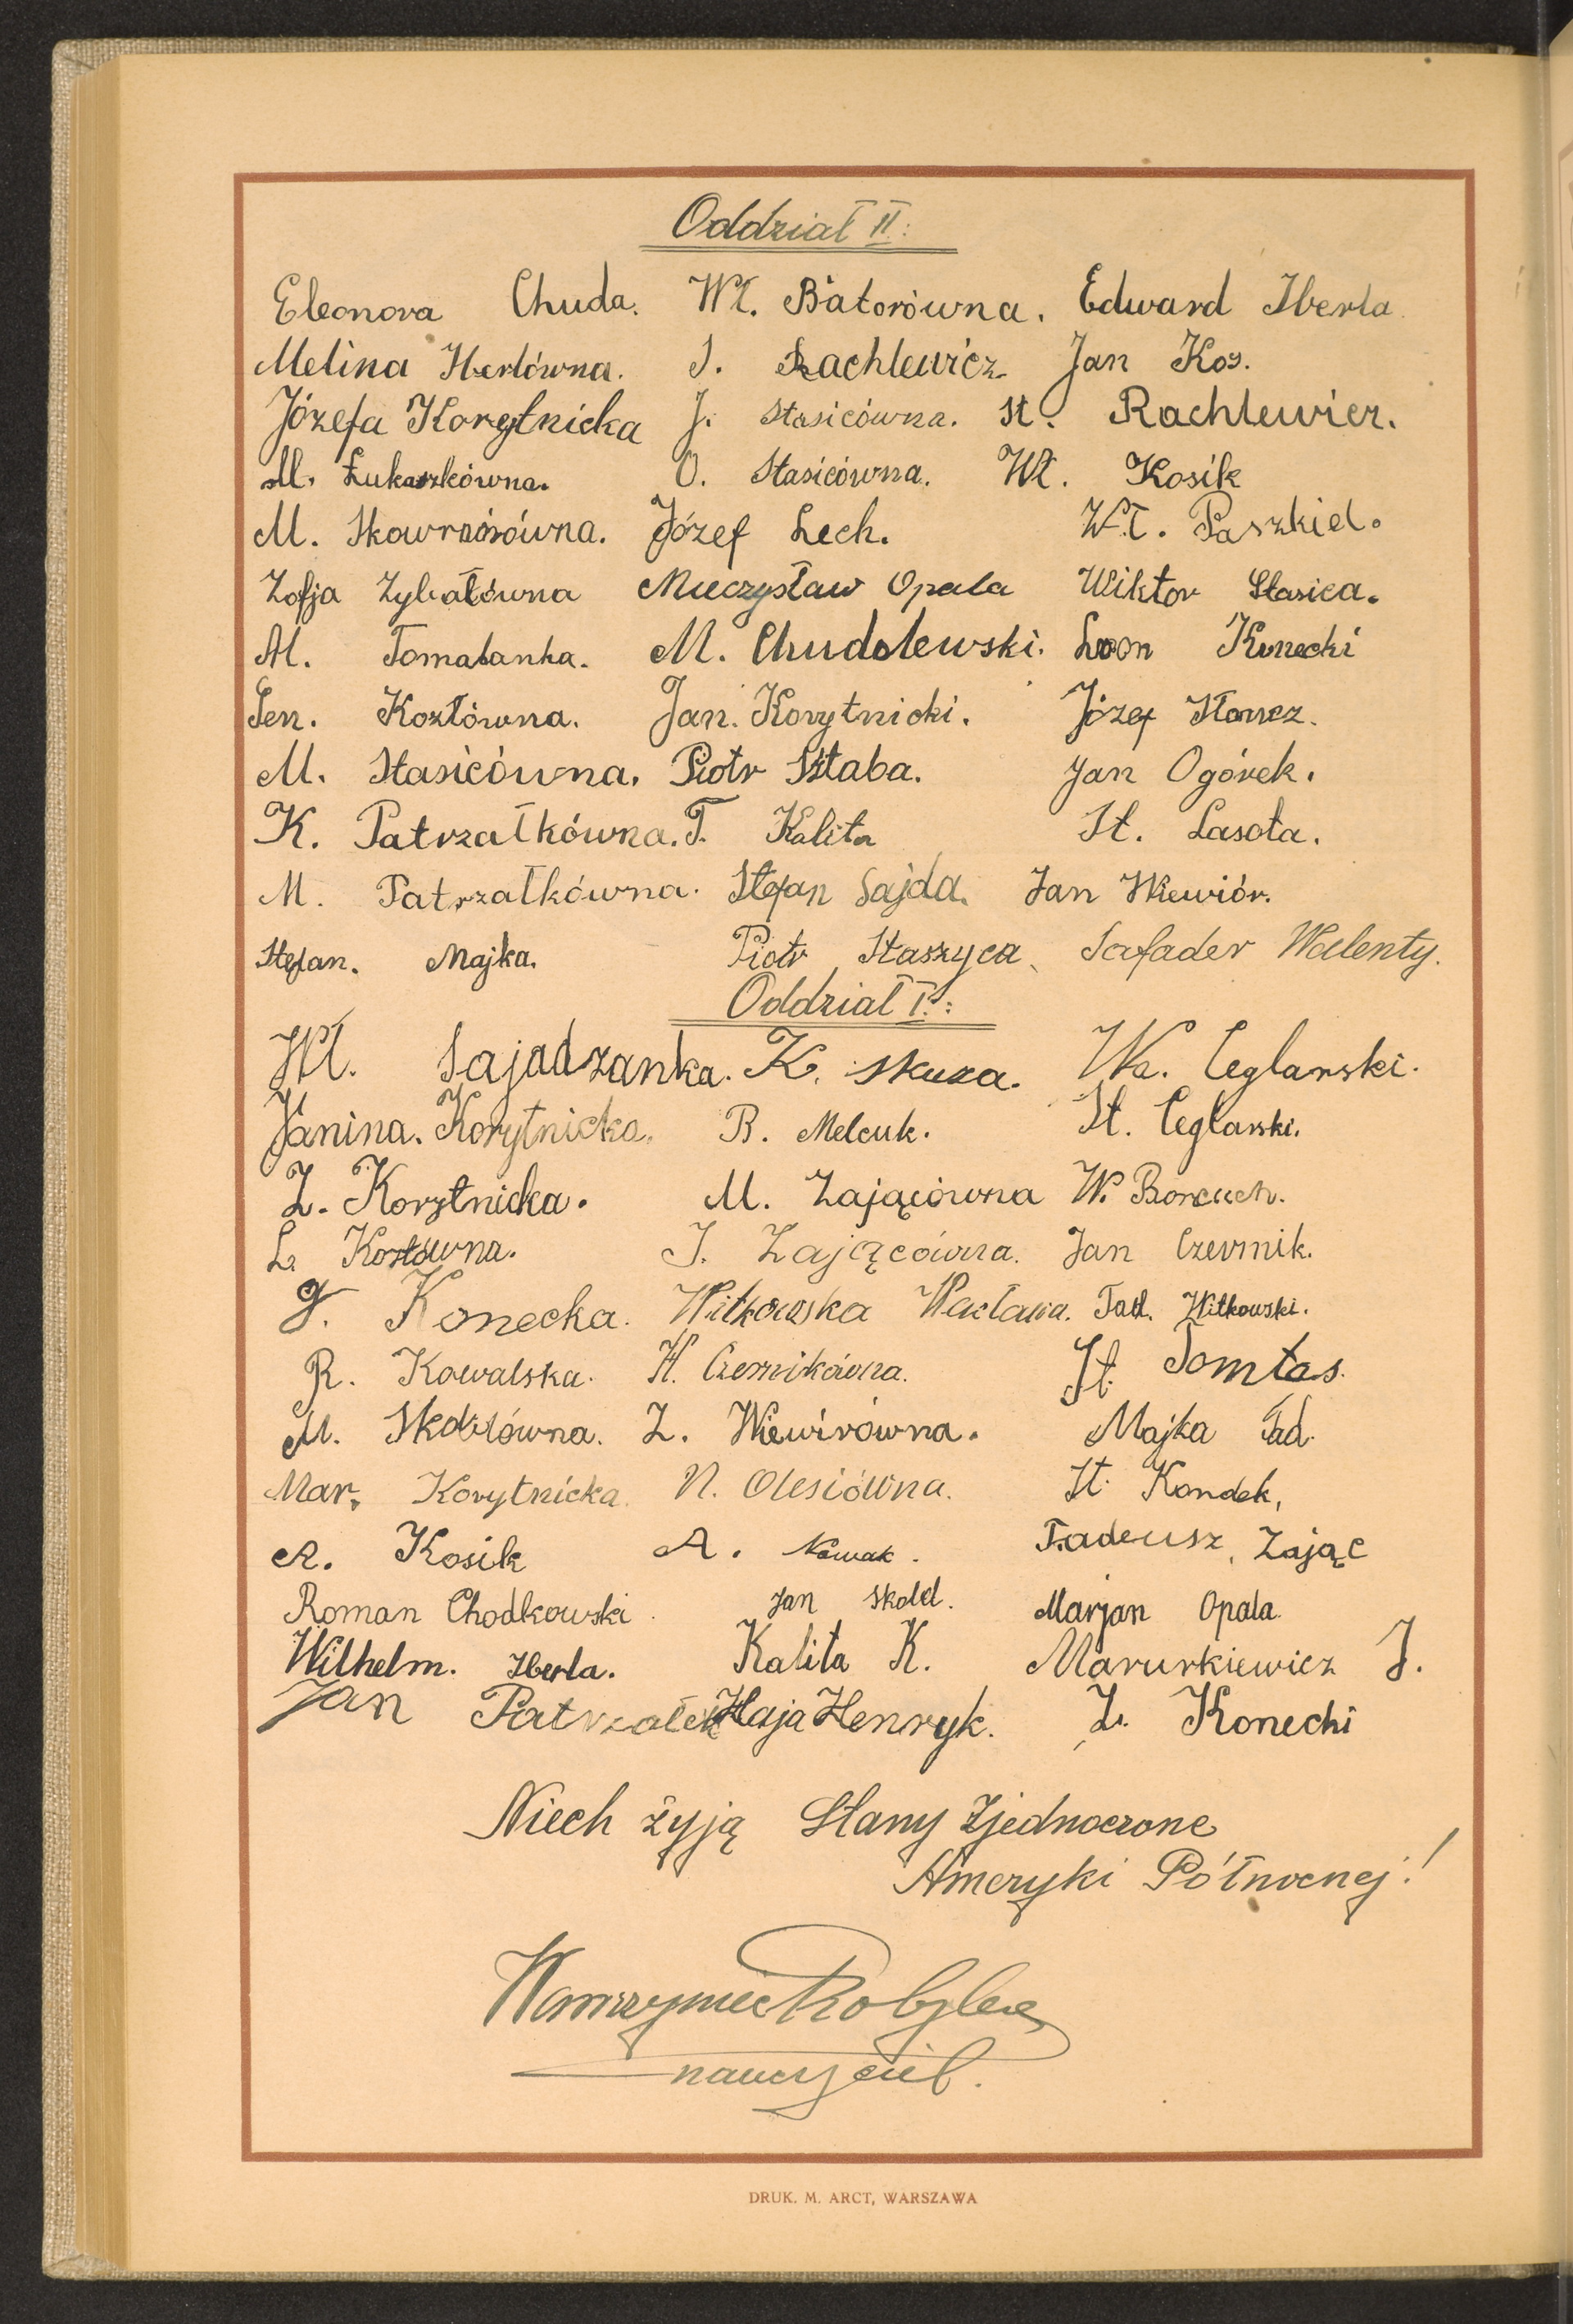 Oddział II:
Eleonora Chuda. Wł. Batorówna. Edward Iberla.
Melina Iberlówna. S. Rachlewicz Jan Kos.
Józefa Korytnicka J. Stasicówna. St. Rachlewicz.
M. Łukaszkówna. O. Stasicówna. Wł. Kosik
M. Skowronówna. Józef Lech. Wł. Paszkiel.
Zofja Zybałówna Mieczysław Opala Wiktor Stasica.
M. Tomalanka. M. Chudolewski. Leon Konecki
Gen. Kozłówna. Jan. Korytnicki. Józef
M. Stasicówna. Piotr Sztaba. Jan Ogórek.
K. Patrzałkówna. T. Kalita St. Lasota.
M. Patrzałkówna. Stefan Sajda. Jan Wiewiór.
Stefan. Majka. Piotr Staszyca Safader Walenty.
Oddział I.:
Wł. Sajadzanka. K. Skuza. Wa. Ceglarski.
Janina. Korytnicka. B. Melcuk. St. Ceglarski.
Z. Korytnicka. M. Zającówna W. Borcuch.
L. Kozłówna. J. Zającówna. Jan Czermik.
G. Konecka. Witkowska Wacława. Tad. Witkowski.
R. Kowalska. H. Czernikówna. St. Tomtas.
M. Skodlówna. Z. Wiewirówna. Majka Tad.
Mar. Korytnicka. N. Olesiówna. St. Kondek,
A. Kosik A. Nowak. Tadeusz, Zając
Roman Chodkowski. Jan Skodel. Marjan Opala.
Wilhelm. Iberla. Kalita K. Mazurkiewicz J.
Jan Patrzałek Haja Henryk. Z. Konecki
Niech żyją Stany Zjednoczone
Ameryki Północnej!
Wawrzyniec
nauczyciel.
DRUK. M. ARCT, WARSZAWA